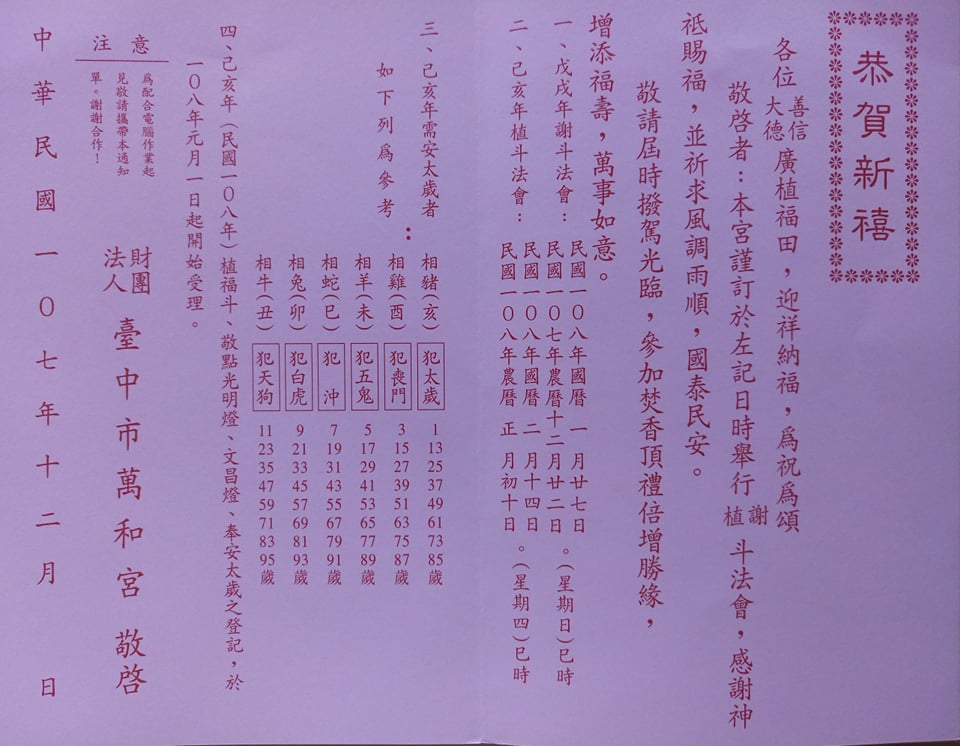 恭賀新禧
各位善信大德廣植福田，迎祥納福，爲祝爲頌
敬啓者：本宮謹訂於左記日時舉行謝植斗法會，感謝神
祇賜福，並祈求風調雨順，國泰民安。
敬請屆時撥駕光臨，參加焚香頂禮倍增勝緣，
增添福壽，萬事如意。
一、戊戌年謝斗法會：
民國一０八年國曆 一 月廿七日
民國一０七年農曆十二月廿二日
。（星期日）巳時
二、己亥年植斗法會：
民國一０八年國曆 二 月十四日
民國一０八年農曆 正 月初十日
。（星期四）巳時
三、己亥年需安太歲者
如下列爲參考：
相豬（亥）犯太歲 1 13 25 37 49 61 73 85歲
相雞（酉）犯喪門 3 15 27 39 51 63 75 87歲
相羊（未）犯五鬼 5 17 29 41 53 65 77 89歲
相蛇（巳）犯 沖 7 19 31 43 55 67 79 91歲
相兔（卯）犯白虎 9 21 33 45 57 69 81 93歲
相牛（丑）犯天狗 11 23 35 47 59 71 83 95歲
四、己亥年（民國一０八年）植福斗、敬點光明燈、文昌燈、奉安太歲之登記，於
一０八年元月一日起開始受理。
注意
爲配合電腦作業起
見敬請攜帶本通知
單。謝謝合作！
財團法人臺中市萬和宮 敬啓
中華民國一０七年十二月 日